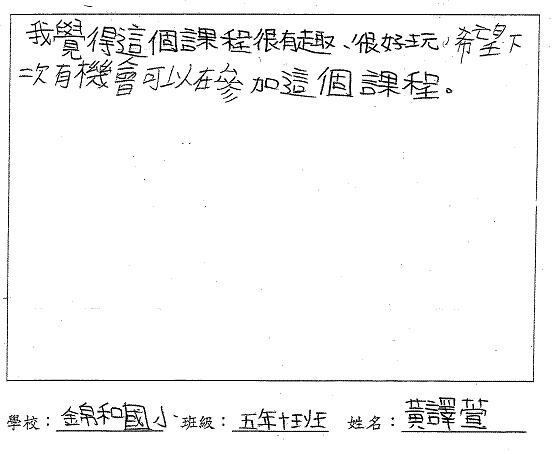 我覺得這個課程很有趣、很好玩,希望下
次有機會可以在參加這個課程。
學校：錦和國小 班級：五年十班 姓名：黃譯萱